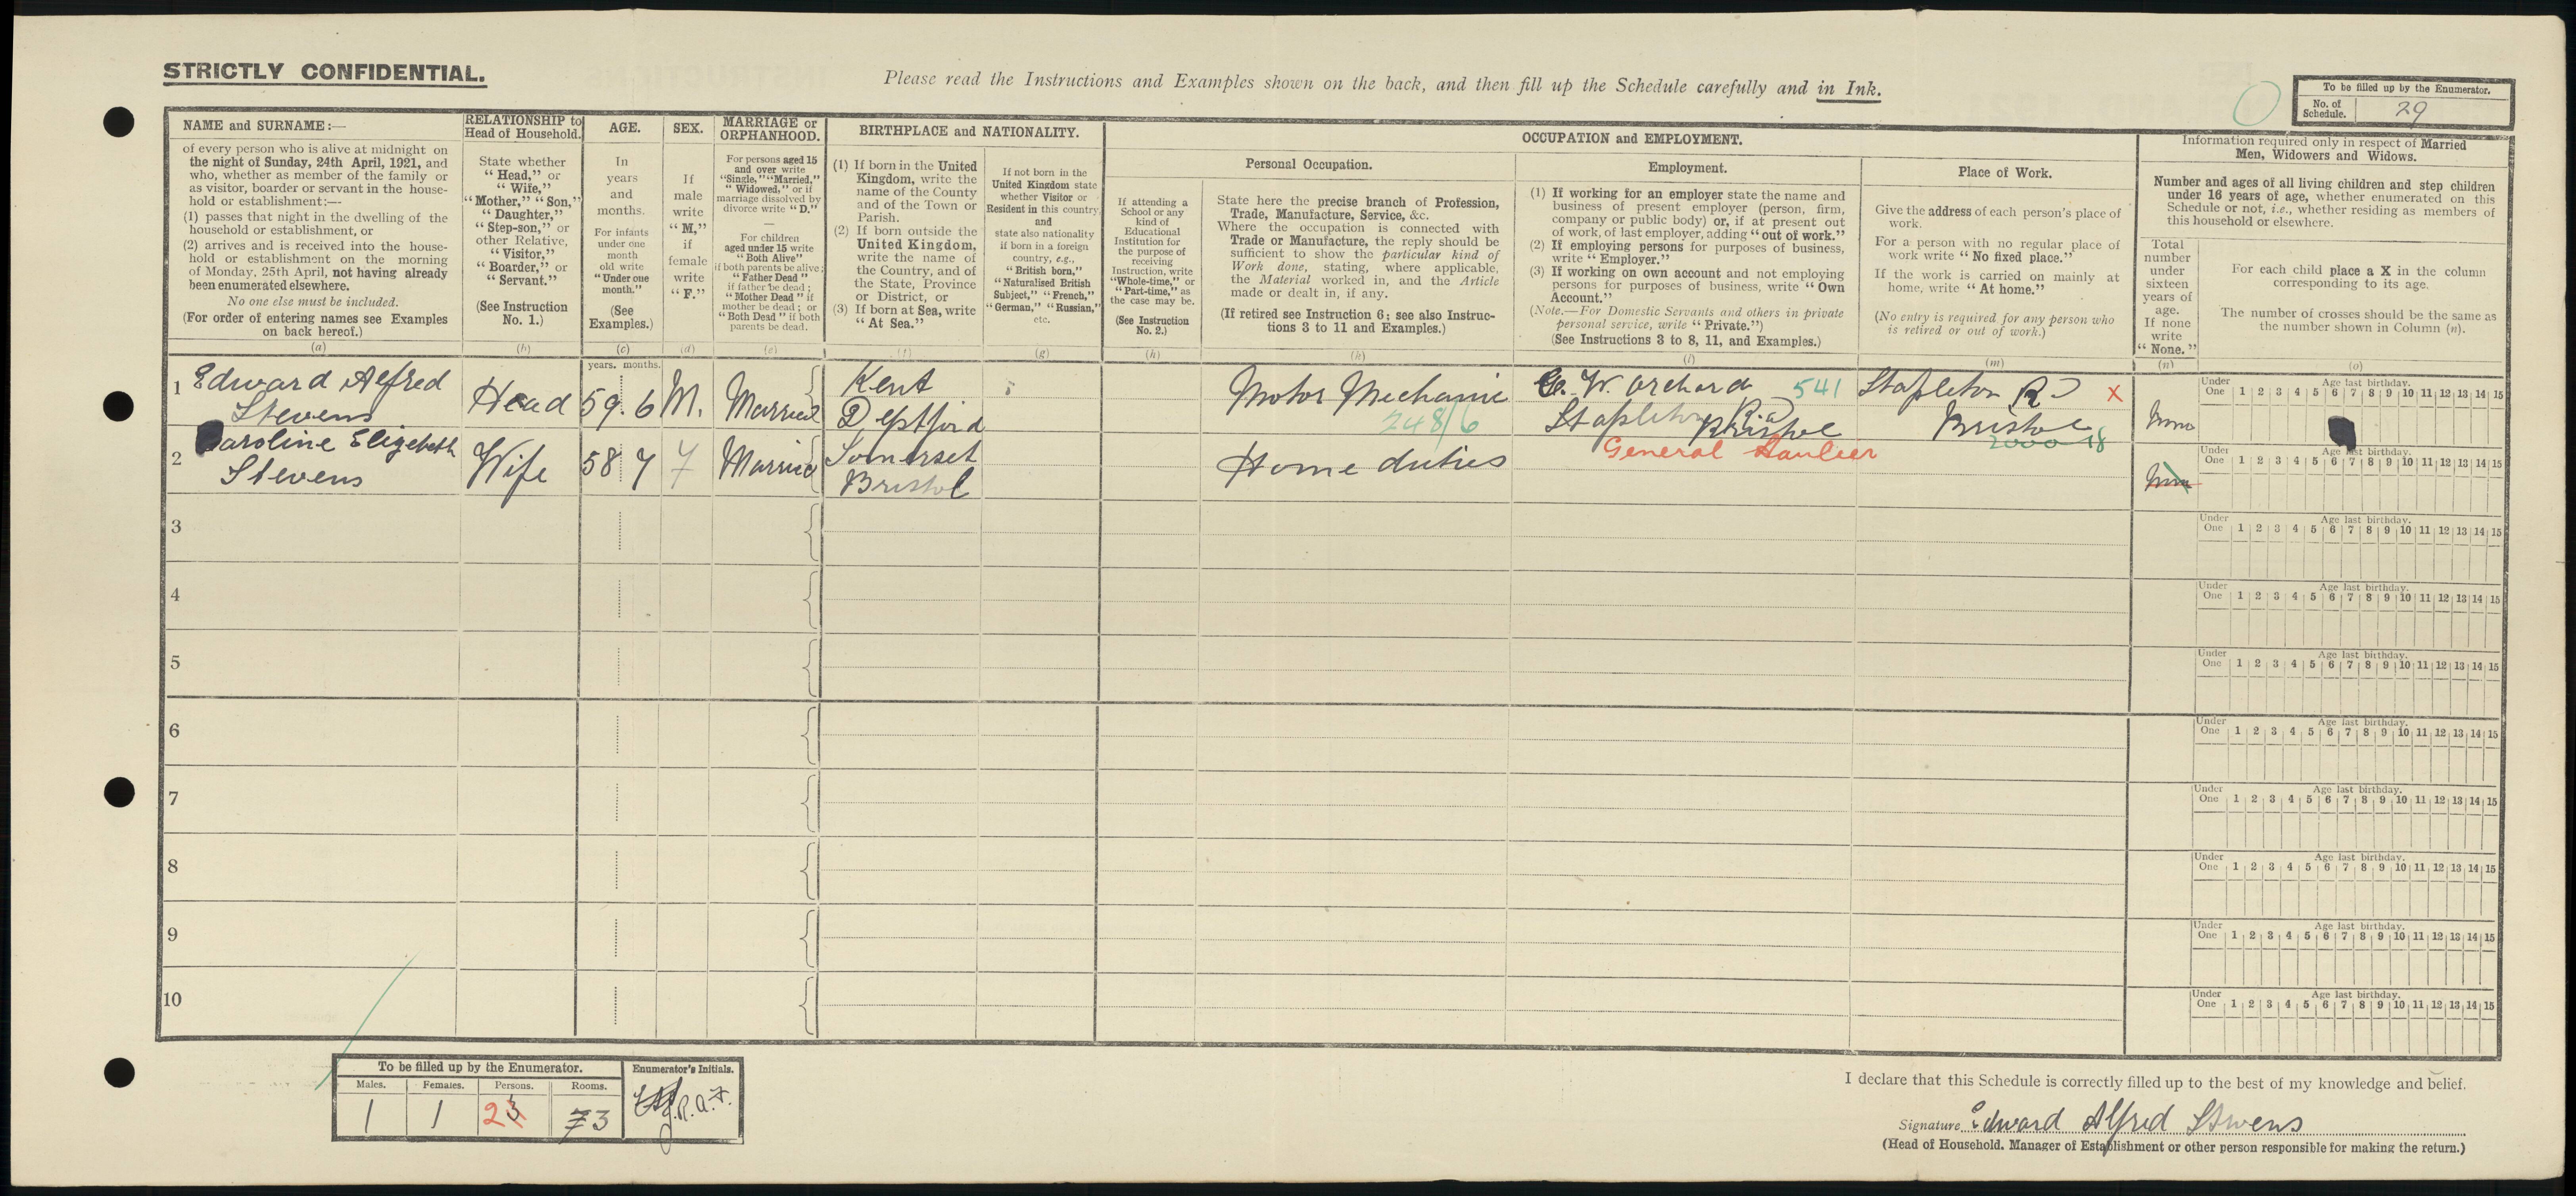 STRICTLY CONFIDENTIAL.
Please read the Instructions and Examples shown on the back, and then fill up the Schedule carefully and in Ink.
To be filled up by the Enumerator.
No. of Schedule. 29
NAME and SURNAME:—
of every person who is alive at midnight on
the night of Sunday, 24th April, 1921, and
who, whether as member of the family or
as visitor, boarder or servant in the house-
hold or establishment:—
(1) passes that night in the dwelling of the
household or establishment, or
(2) arrives and is received into the house-
hold or establishment on the morning
of Monday, 25th April, not having already
been enumerated elsewhere.
No one else must be included.
(For order of entering names see Examples
on back hereof.)
(a)
RELATIONSHIP to
Head of Household.
State whether
"Head," or
"Wife,"
"Mother," "Son,"
"Daughter,"
"Step-son," or
other Relative,
"Visitor,"
"Boarder," or
"Servant."
(See Instruction
No. 1.)
(b)
AGE.
In
years
and
months.
For infants
under one
month
old write
"Under one
month."
(See
Examples.)
(c)
years. months.
SEX.
If
male
write
"M,"
if
female
write
"F."
(d)
MARRIAGE or
ORPHANHOOD.
For persons aged 15
and over write
"Single," "Married,"
"Widowed," or if
marriage dissolved by
divorce write "D."
—
For children
aged under 15 write
"Both Alive"
if both parents be alive;
"Father Dead"
if father be dead;
"Mother Dead" if
mother be dead; or
"Both Dead" if both
parents be dead.
(e)
BIRTHPLACE and NATIONALITY.
(1) If born in the United
Kingdom, write the
name of the County
and of the Town or
Parish.
(2) If born outside the
United Kingdom,
write the name of
the Country, and of
the State, Province
or District, or
(3) If born at Sea, write
"At Sea."
(f)
If not born in the
United Kingdom state
whether Visitor or
Resident in this country,
and
state also nationality
if born in a foreign
country, e.g.,
"British born,"
"Naturalised British
Subject," "French,"
"German," "Russian,"
etc.
(g)
OCCUPATION and EMPLOYMENT.
Personal Occupation.
If attending a
School or any
kind of
Educational
Institution for
the purpose of
receiving
Instruction, write
"Whole-time," or
"Part-time," as
the case may be.
(See Instruction
No. 2.)
(h)
State here the precise branch of Profession,
Trade, Manufacture, Service, &c.
Where the occupation is connected with
Trade or Manufacture, the reply should be
sufficient to show the particular kind of
Work done, stating, where applicable,
the Material worked in, and the Article
made or dealt in, if any.
(If retired see Instruction 6; see also Instruc-
tions 3 to 11 and Examples.)
(k)
Employment.
(1) If working for an employer state the name and
business of present employer (person, firm,
company or public body) or, if at present out
of work, of last employer, adding "out of work."
(2) If employing persons for purposes of business,
write "Employer."
(3) If working on own account and not employing
persons for purposes of business, write "Own
Account."
(Note.—For Domestic Servants and others in private
personal service, write "Private.")
(See Instructions 3 to 8, 11, and Examples.)
(l)
Place of Work.
Give the address of each person's place of
work.
For a person with no regular place of
work write "No fixed place."
If the work is carried on mainly at
home, write "At home."
(No entry is required for any person who
is retired or out of work.)
(m)
Information required only in respect of Married
Men, Widowers and Widows.
Number and ages of all living children and step children
under 16 years of age, whether enumerated on this
Schedule or not, i.e., whether residing as members of
this household or elsewhere.
Total
number
under
sixteen
years of
age.
If none
write
"None."
(n)
For each child place a X in the column
corresponding to its age.
The number of crosses should be the same as
the number shown in Column (n).
(o)
1 Edward Alfred Stevens Head 59. 6 M. Married Kent Deptford Motor Mechanic 248/6 W. Orchard 541 Stapleton Rd Bristol Stapleton Rd Bristol X None
Under One Age last birthday. 1 2 3 4 5 6 7 8 9 10 11 12 13 14 15
General Haulier 2000-18
2 Caroline Elizabeth Stevens Wife 58 7 F Married Somerset Bristol Home duties None
Under One Age last birthday. 1 2 3 4 5 6 7 8 9 10 11 12 13 14 15
3
Under One Age last birthday. 1 2 3 4 5 6 7 8 9 10 11 12 13 14 15
4
Under One Age last birthday. 1 2 3 4 5 6 7 8 9 10 11 12 13 14 15
5
Under One Age last birthday. 1 2 3 4 5 6 7 8 9 10 11 12 13 14 15
6
Under One Age last birthday. 1 2 3 4 5 6 7 8 9 10 11 12 13 14 15
7
Under One Age last birthday. 1 2 3 4 5 6 7 8 9 10 11 12 13 14 15
8
Under One Age last birthday. 1 2 3 4 5 6 7 8 9 10 11 12 13 14 15
9
Under One Age last birthday. 1 2 3 4 5 6 7 8 9 10 11 12 13 14 15
10
Under One Age last birthday. 1 2 3 4 5 6 7 8 9 10 11 12 13 14 15
To be filled up by the Enumerator.
Enumerator's Initials.
Males. Females. Persons. Rooms.
1 1 2 3 J.R.A.F.
I declare that this Schedule is correctly filled up to the best of my knowledge and belief.
Signature Edward Alfred Stevens
(Head of Household. Manager of Establishment or other person responsible for making the return.)